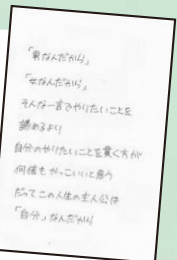 「男なんだから」
「女なんだから」
そんな一言でやりたいことを
諦めるより
自分のやりたいことを貫く方が
何倍もかっこいいと思う
だってこの人生の主人公は
「自分」なんだから